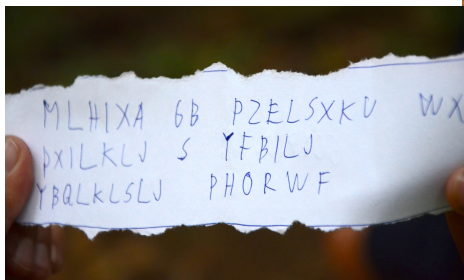 MLHIXA GB PZELSXKU WX
PXILKLJ S YFBILJ
YBQLKLSLJ PHORWF